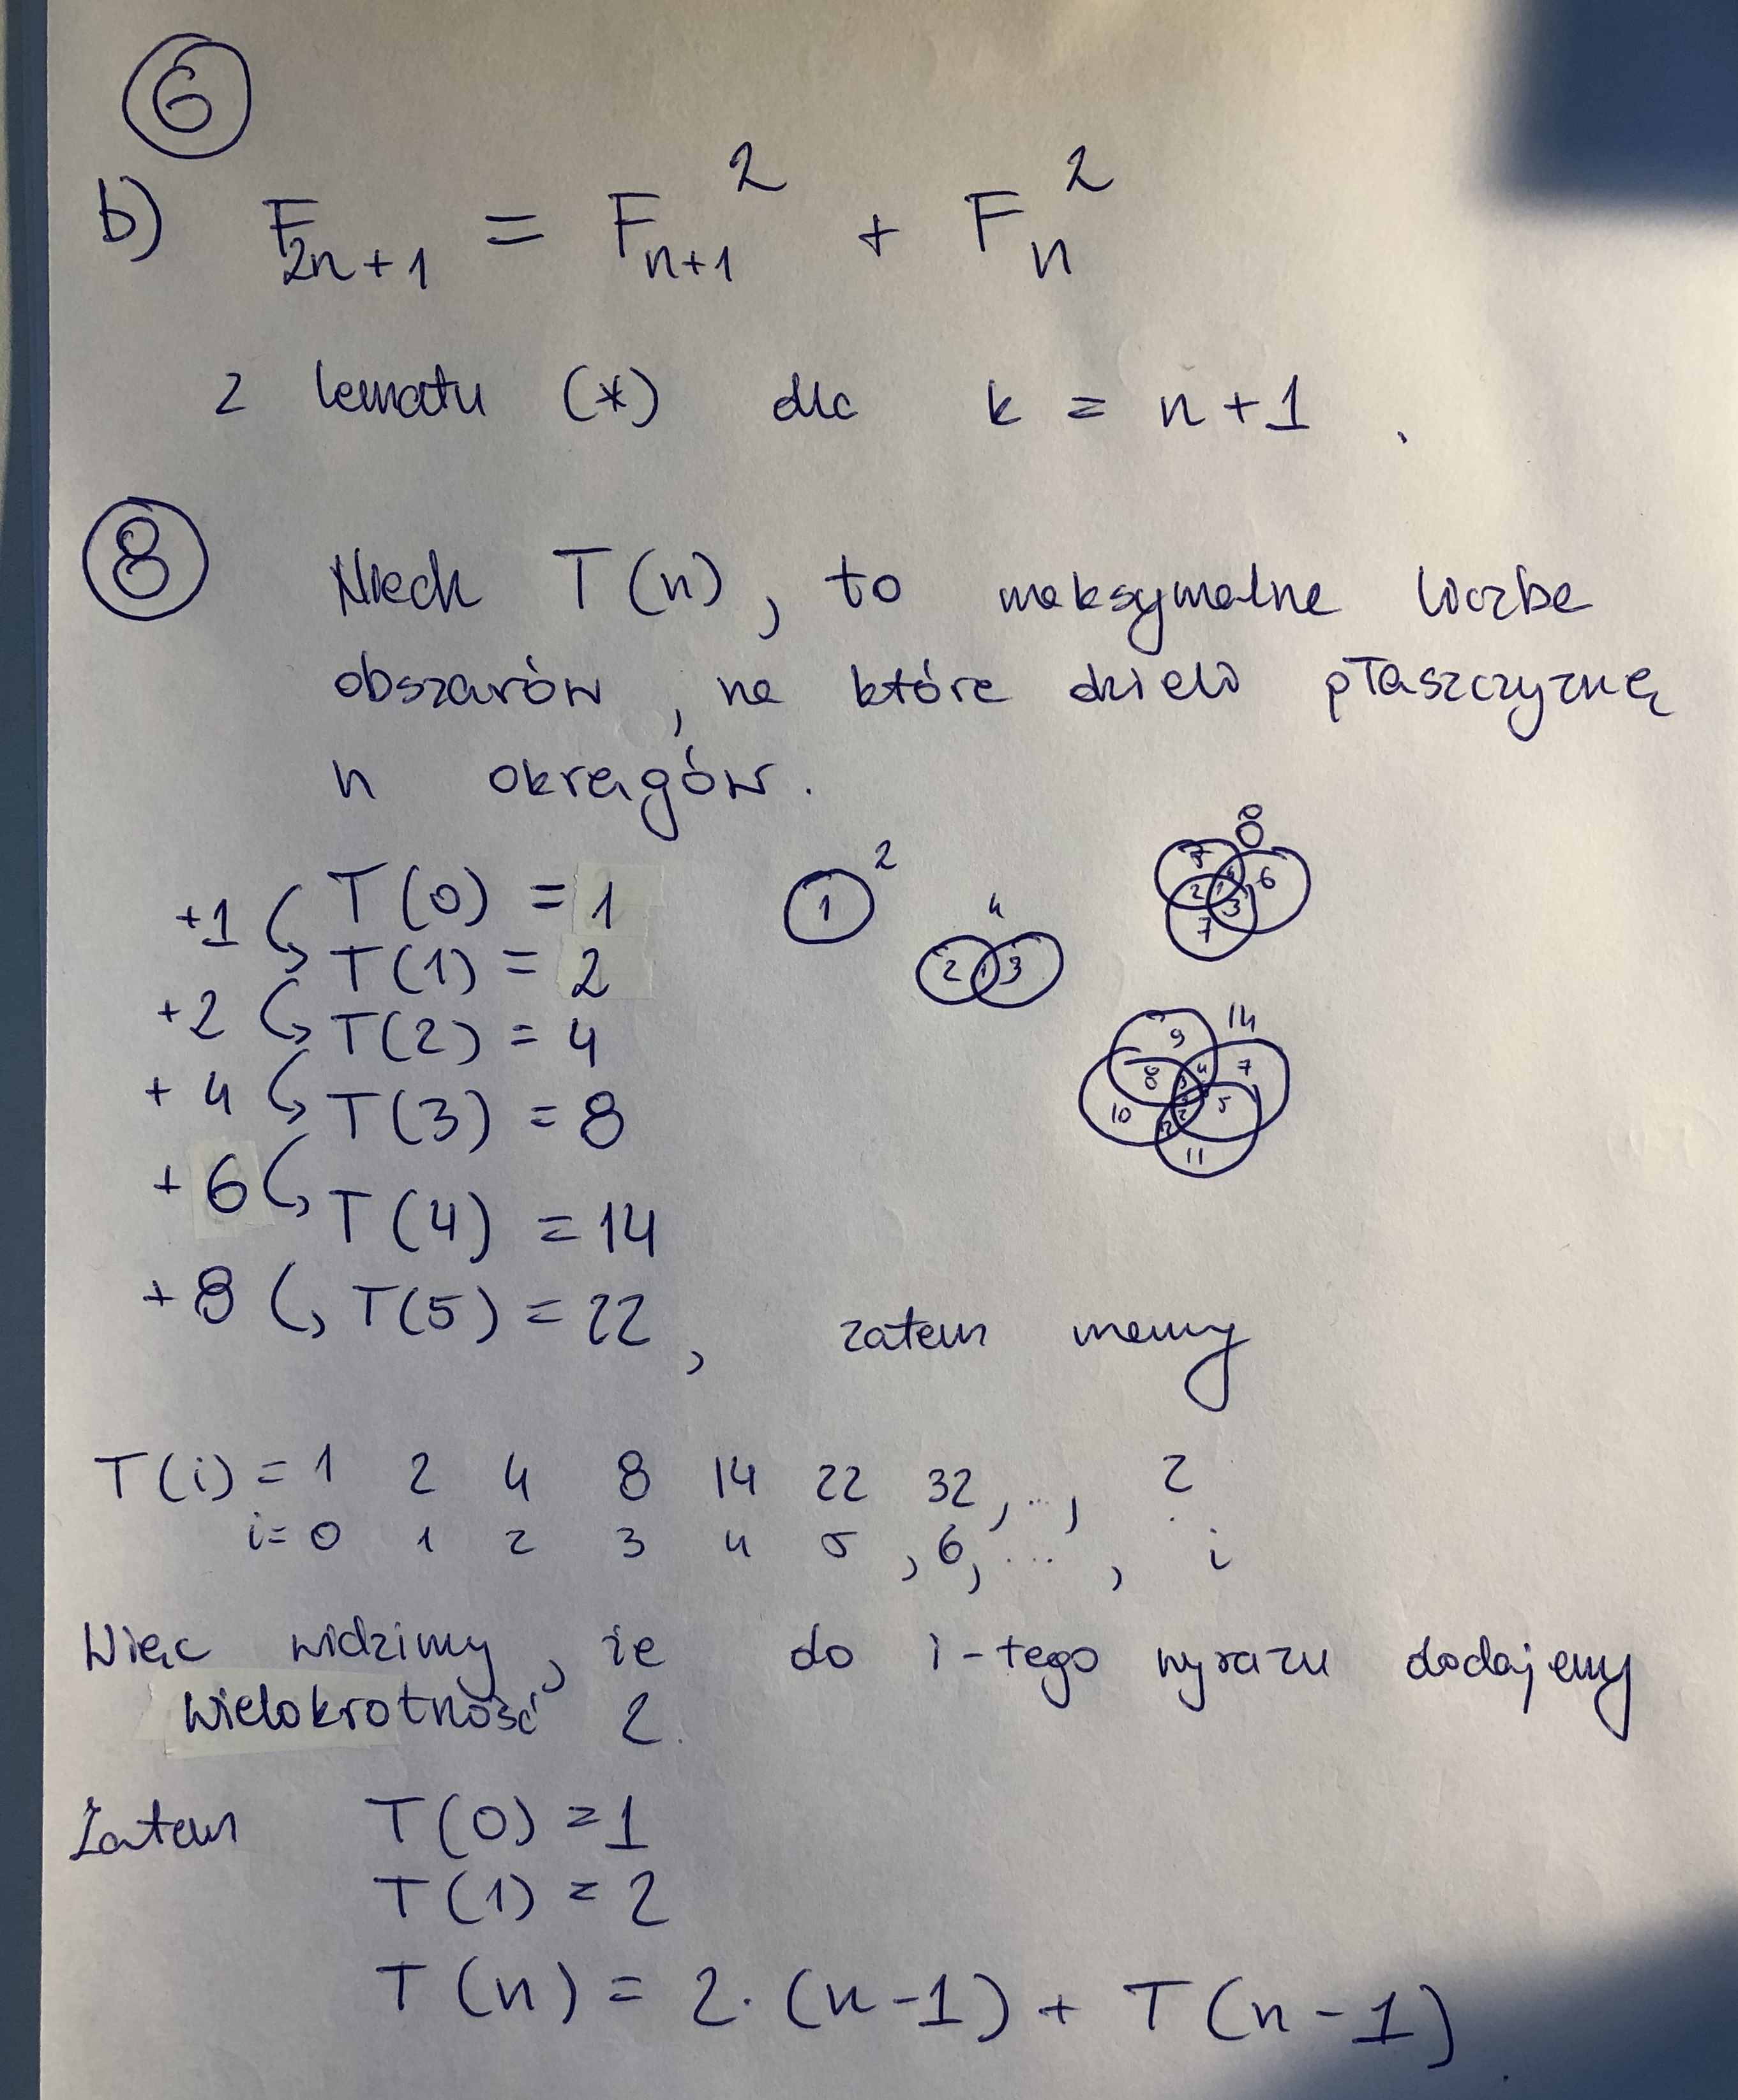 6
b) F_{2n+1} = F_{n+1}^2 + F_n^2
z lematu (*) dla k = n+1 .
8 Niech T(n), to maksymalna liczba
obszarów, na które dzieli płaszczyznę
n okręgów.
+1 T(0) = 1
+2 T(1) = 2
+4 T(2) = 4
+6 T(3) = 8
+8 T(4) = 14
T(5) = 22, zatem mamy
1 2
2 1 3 4
7 8 2 1 6 3 7
9 14 8 4 7 10 5 11
T(i) = 1 2 4 8 14 22 32, ..., ?
i= 0 1 2 3 4 5, 6, ..., i
Więc widzimy, że do i-tego wyrazu dodajemy
wielokrotność 2.
Zatem T(0) = 1
T(1) = 2
T(n) = 2·(n-1) + T(n-1).